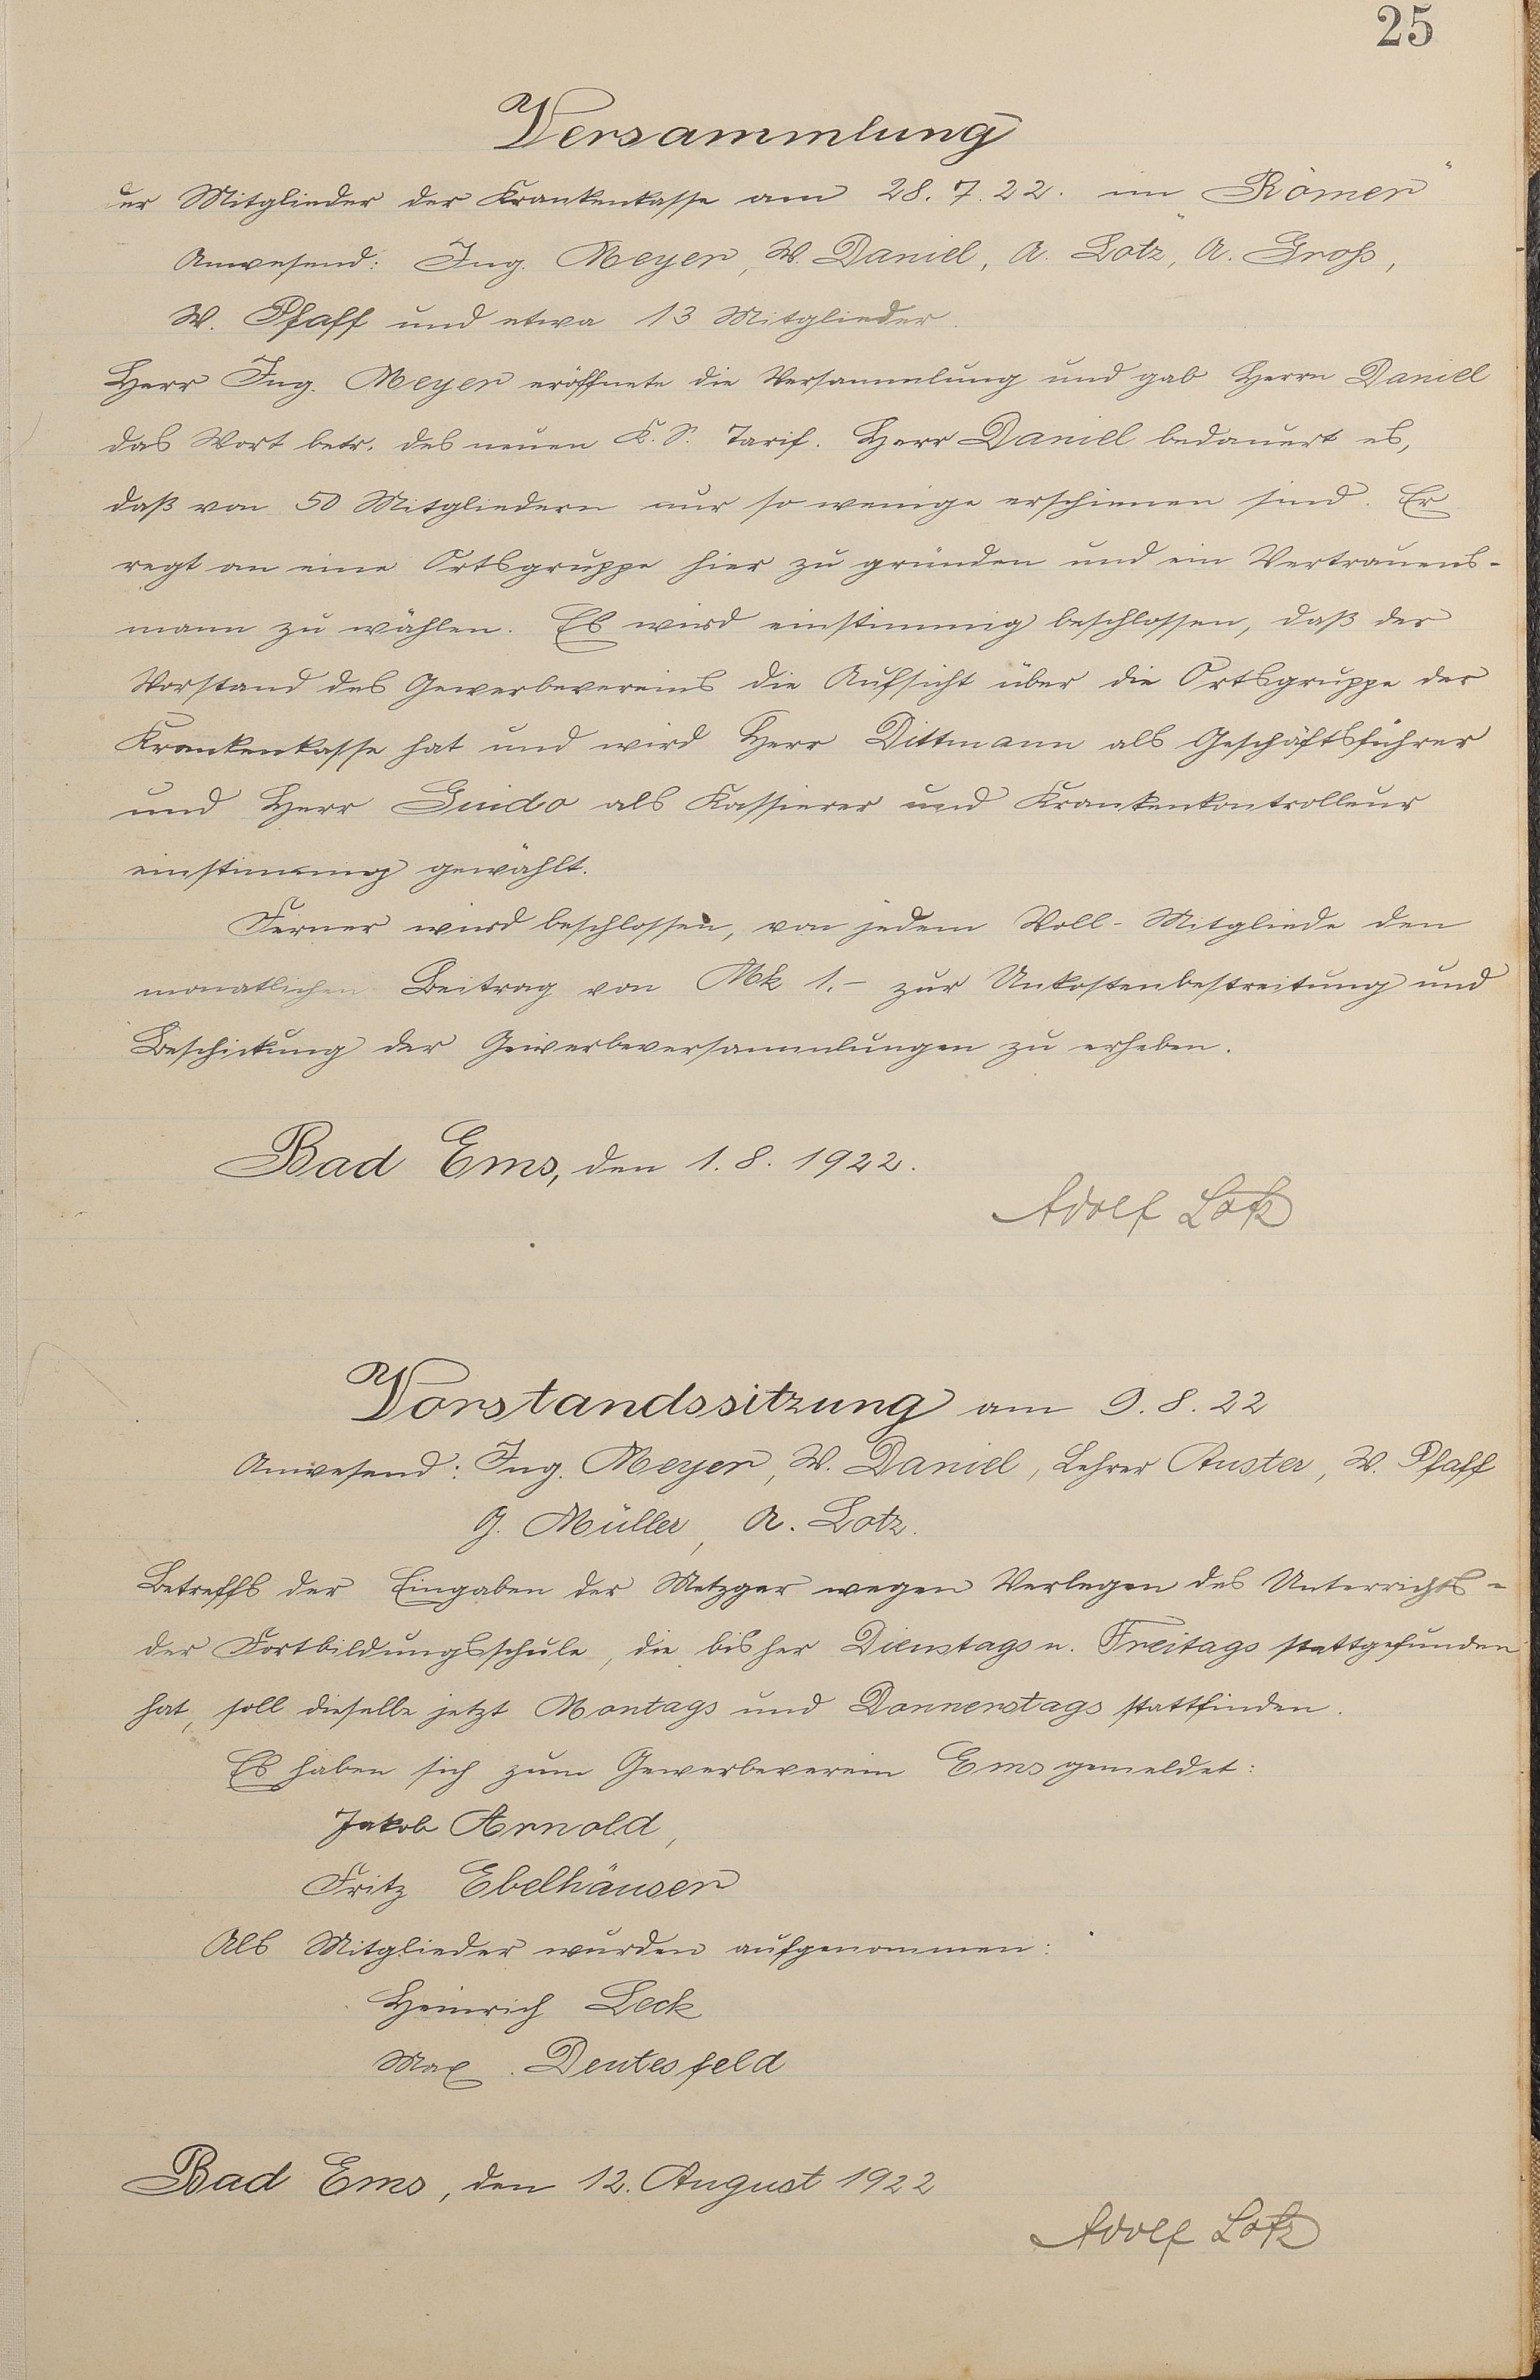 25
Versammlung
der Mitglieder der Krankenkasse am 28. 7. 22. im „Römer“
Anwesend: Ing. Meyer, W. Daniel, A. Lotz, A. Groß,
W. Pfaff und etwa 13 Mitglieder.
Herr Ing. Meyer eröffnete die Versammlung und gab Herrn Daniel
das Wort betr. des neuen K. S. Tarif. Herr Daniel bedauert es,
daß von 50 Mitgliedern nur so wenige erschienen sind. Er
regt an eine Ortsgruppe hier zu gründen und ein Vertrauens-
mann zu wählen. Es wird einstimmig beschlossen, daß der
Vorstand des Gewerbevereins die Aufsicht über die Ortsgruppe der
Krankenkasse hat und wird Herr Dittmann als Geschäftsführer
und Herr Guido als Kassierer und Krankenkontrolleur
einstimmig gewählt.
Ferner wird beschlossen, von jedem Voll-Mitgliede den
monatlichen Beitrag von Mk 1.- zur Unkostenbestreitung und
Beschickung der Gewerbeversammlungen zu erheben.
Bad Ems, den 1. 8. 1922.
Adolf Lotz
Vorstandssitzung am 9. 8. 22
Anwesend: Ing. Meyer, W. Daniel, Lehrer Auster, W. Pfaff
G. Müller, A. Lotz.
Betreffs der Eingaben der Metzger wegen Verlegen des Unterrichts-
der Fortbildungsschule, die bisher Dienstags u. Freitags stattgefunden
hat, soll dieselbe jetzt Montags und Donnerstags stattfinden.
Es haben sich zum Gewerbeverein Ems gemeldet:
Jakob Arnold,
Fritz Ebelhäuser
Als Mitglieder wurden aufgenommen:
Heinrich Leck
Max Deutesfeld
Bad Ems, den 12. August 1922
Adolf Lotz